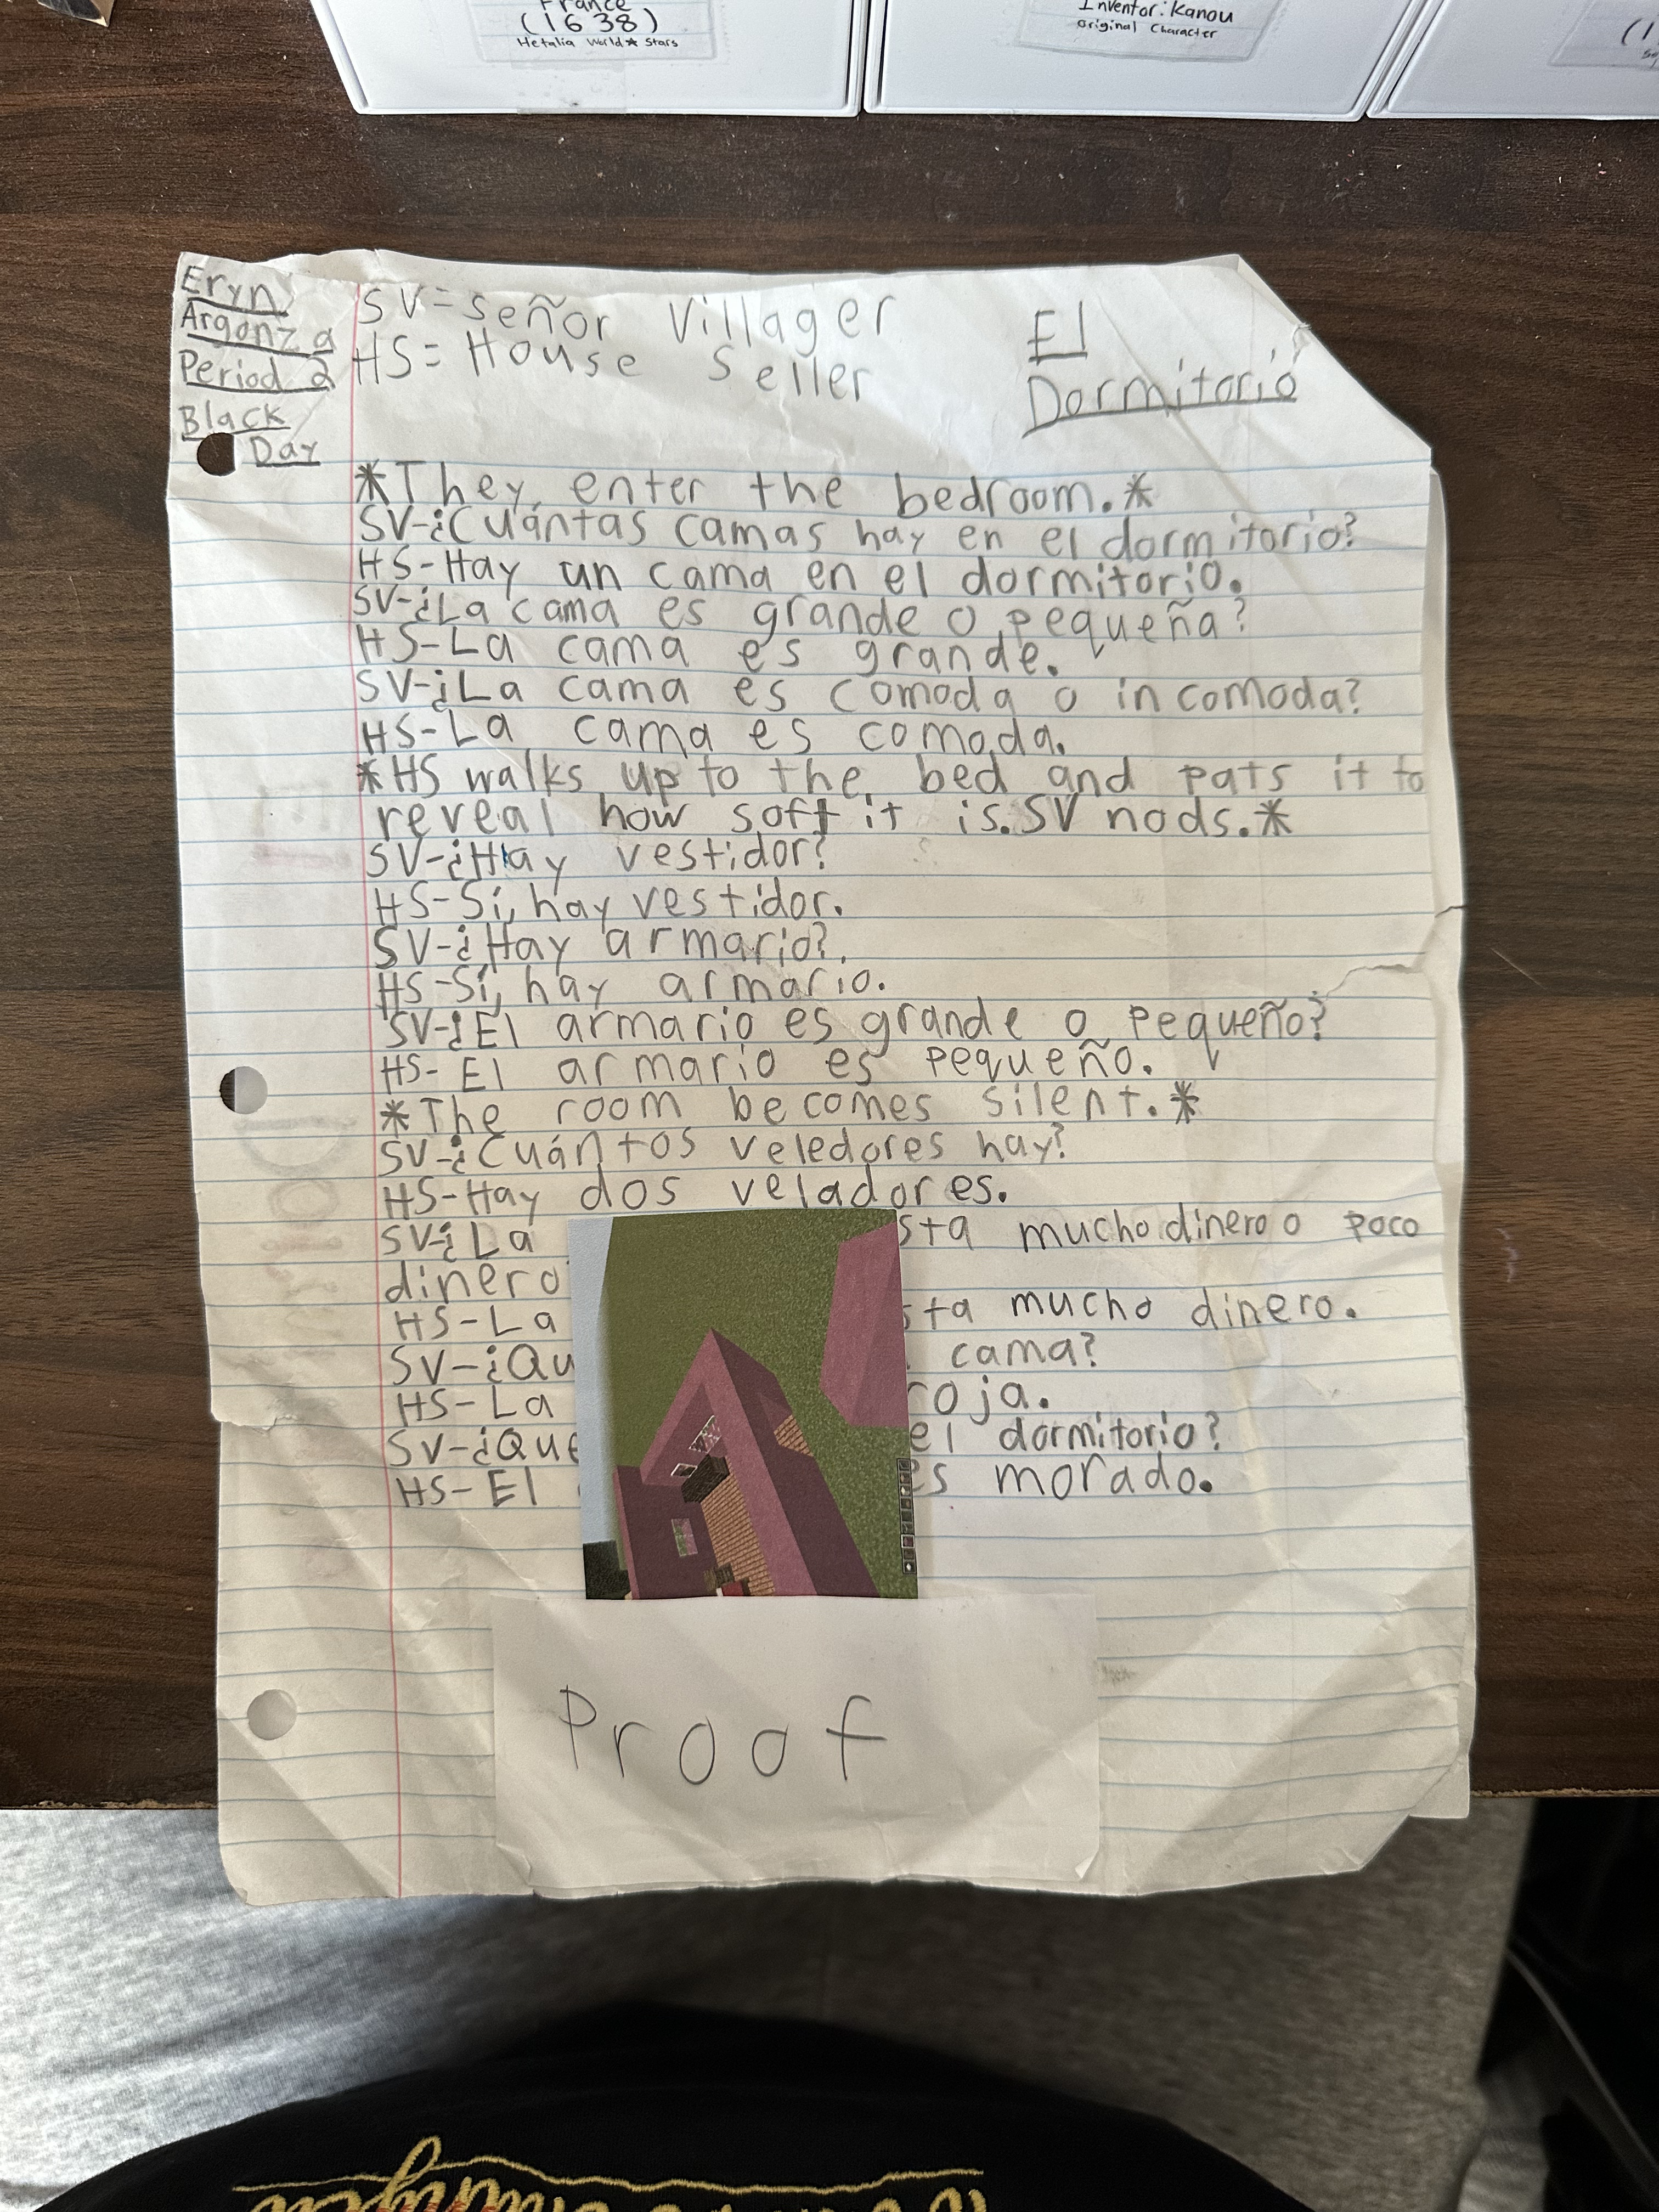 France
(1638)
Hetalia World★Stars
Inventor: Kanou
Original Character
Eryn
Argonza
Period 2
Black
Day
SV=Señor Villager
HS=House Seller
El
Dormitorio
*They enter the bedroom.*
SV-¿Cuántas camas hay en el dormitorio?
HS-Hay un cama en el dormitorio.
SV-¿La cama es grande o pequeña?
HS-La cama es grande.
SV-¿La cama es comoda o incomoda?
HS-La cama es comoda.
*HS walks up to the bed and pats it to
reveal how soft it is. SV nods.*
SV-¿Hay vestidor?
HS-Sí, hay vestidor.
SV-¿Hay armario?
HS-Sí, hay armario.
SV-¿El armario es grande o pequeño?
HS-El armario es pequeño.
*The room becomes silent.*
SV-¿Cuántos veledores hay?
HS-Hay dos veladores.
SV-¿La sta mucho dinero o poco
dinero
HS-La sta mucho dinero.
SV-¿Qu cama?
HS-La roja.
SV-¿Que el dormitorio?
HS-El es morado.
Proof